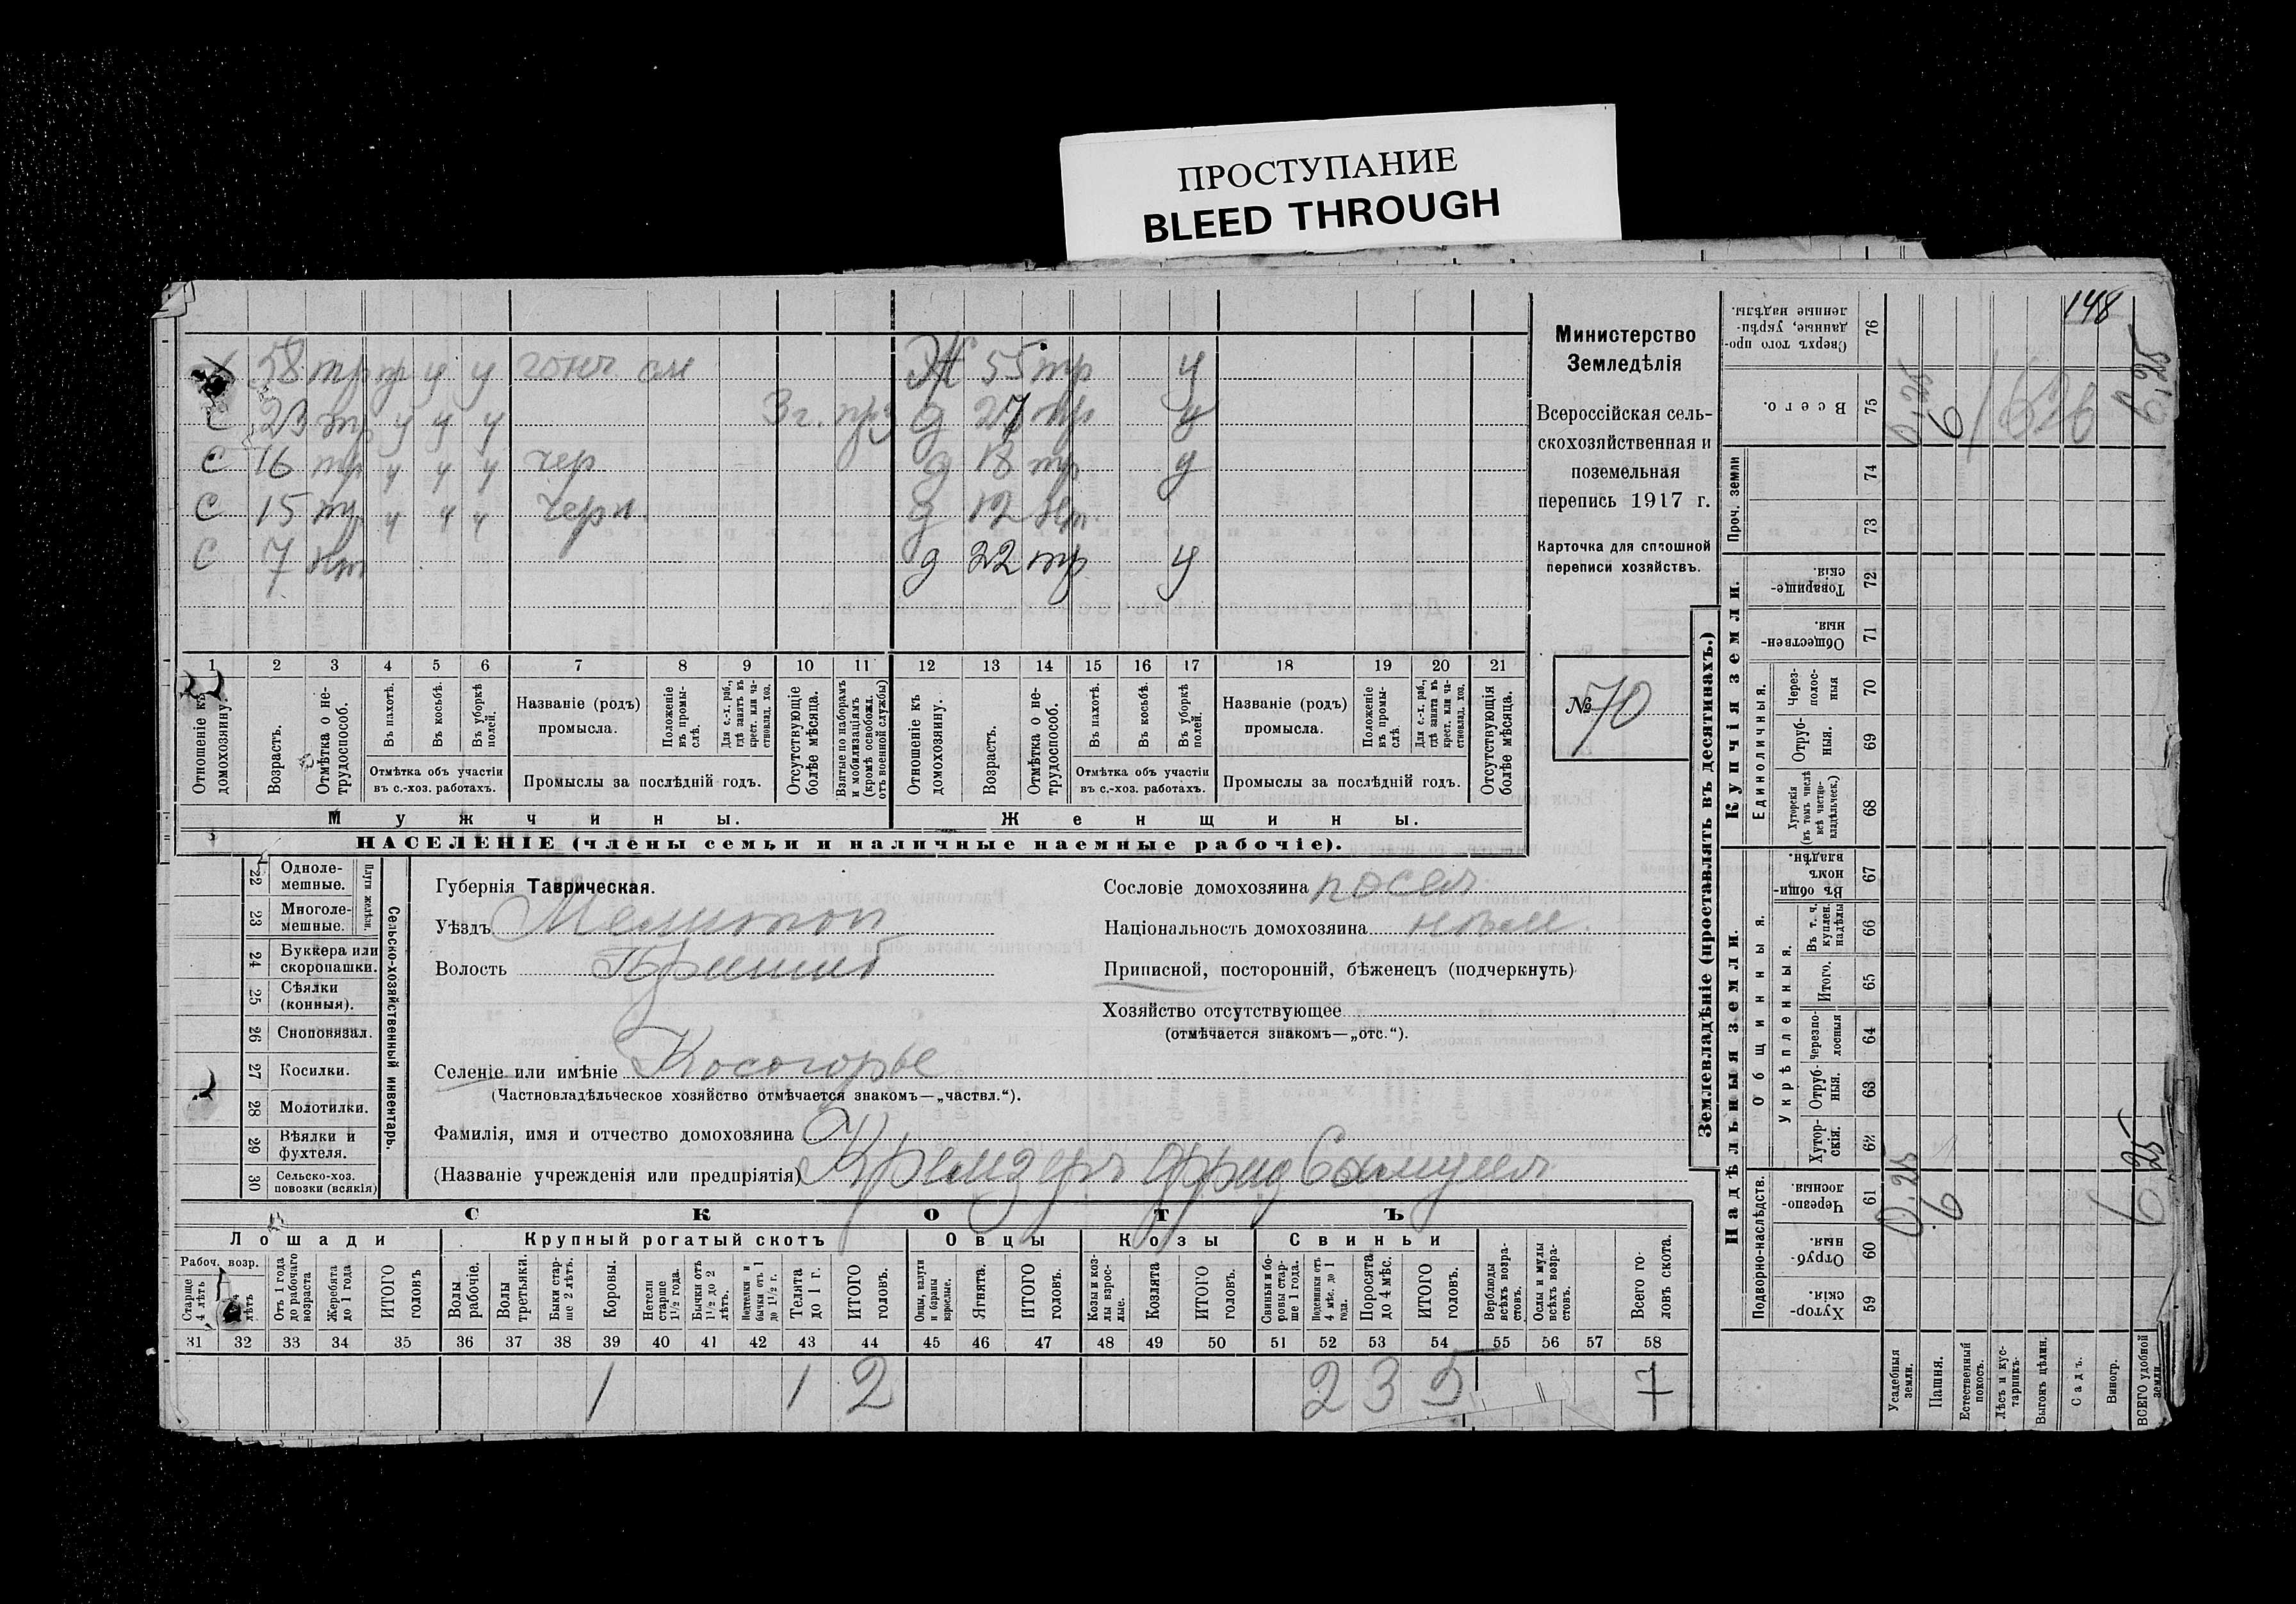 ПРОСТУПАНИЕ
BLEED THROUGH
148
58 тр ч ч
Ж 55 тр ч
С 23 тр ч ч ч
3 г.
д 27 тр ч
С 16 тр ч ч ч чер
д 18 тр ч
С 15 тр ч ч ч черн.
д 12
С 7
д 22 тр ч
1 2 3 4 5 6 7 8 9 10 11 12 13 14 15 16 17 18 19 20 21
Отношеніе къ домохозяину.
Возрастъ.
Отмѣтка о не-трудоспособ.
Въ пахотѣ.
Въ косьбѣ.
Въ уборкѣ полей.
Отмѣтка объ участіи въ с.-хоз. работахъ.
Названіе (родъ) промысла.
Положеніе въ промыслѣ.
Для с.-х. раб., гдѣ занятъ въ крест. или частновлад. хоз.
Промыслы за послѣдній годъ.
Отсутствующіе болѣе мѣсяца.
Взятые по наборамъ и мобилизаціямъ (кромѣ освобожд. отъ военной службы)
Отношеніе къ домохозяину.
Возрастъ.
Отмѣтка о не-трудоспособ.
Въ пахотѣ.
Въ косьбѣ.
Въ уборкѣ полей.
Отмѣтка объ участіи въ с.-хоз. работахъ.
Названіе (родъ) промысла.
Положеніе въ промыслѣ.
Для с.-х. раб., гдѣ занята въ крест. или частновлад. хоз.
Промыслы за послѣдній годъ.
Отсутствующія болѣе мѣсяца.
Мужчины.
Женщины.
НАСЕЛЕНІЕ (члены семьи и наличные наемные рабочіе).
Министерство
Земледѣлія
Всероссійская сель-
скохозяйственная и
поземельная
перепись 1917 г.
Карточка для сплошной
переписи хозяйствъ.
№ 70
22 Одноле-мешные.
23 Многоле-мешные.
Плуги желѣзн.
24 Буккера или скоропашки.
25 Сѣялки (конныя).
26 Сноповязал.
27 Косилки.
28 Молотилки.
29 Вѣялки и фухтеля.
30 Сельско-хоз. повозки (всякія)
Сельско-хозяйственный инвентарь.
Губернія Таврическая.
Уѣздъ Мелитоп
Волость Пришиб
Селеніе или имѣніе Косогорье
(Частновладѣльческое хозяйство отмѣчается знакомъ—„частвл.“).
Фамилія, имя и отчество домохозяина
(Названіе учрежденія или предпріятія) Кремзеръ Фрид Самуил
Сословіе домохозяина посел.
Національность домохозяина нѣм.
Приписной, посторонній, бѣженецъ (подчеркнуть)
Хозяйство отсутствующее
(отмѣчается знакомъ—„отс.“).
СКОТЪ
Лошади
Крупный рогатый скотъ
Овцы
Козы
Свиньи
Рабоч. возр.
Старше 4 лѣтъ
лѣтъ
Отъ 1 года до рабочаго возраста
Жеребята до 1 года
ИТОГО головъ
Волы рабочіе.
Волы третьяки.
Быки старше 2 лѣтъ.
Коровы.
Нетели старше 1½ года.
Бычки отъ 1½ до 2 лѣтъ.
Подтелки и бычки отъ 1 до 1½ г.
Телята до 1 г.
ИТОГО головъ.
Овцы, валухи и бараны взрослые.
Ягнята.
ИТОГО головъ.
Козы и козлы взрослые.
Козлята
ИТОГО головъ.
Свиньи и боровы старше 1 года.
Подсвинки отъ 4 мѣс. до 1 года.
Поросята до 4 мѣс.
ИТОГО головъ.
Верблюды всѣхъ возрастовъ.
Ослы и мулы всѣхъ возрастовъ.
Всего головъ скота.
31 32 33 34 35 36 37 38 39 40 41 42 43 44 45 46 47 48 49 50 51 52 53 54 55 56 57 58
1 1 2 2 3 5 7
Землевладѣніе (проставлять въ десятинахъ.)
Купчія земли.
Надѣльныя земли.
Сверхъ того проданные, укрѣпленные надѣлы. 76
Всего. 75
Проч. земли 74 73
Товарищескія. 72
Общественныя. 71
Единоличныя.
Черезполосныя 70
Отрубныя. 69
Хуторскія (въ томъ числѣ всѣ частновладѣльческ.) 68
Общинныя.
Въ общиномъ владѣн. 67
Укрѣпленныя.
Въ т. ч. куплен. надѣлы 66
Итого. 65
Черезполосныя 64
Отрубныя. 63
Хуторскія. 62
Подворно-наслѣдств.
Черезполосныя. 61
Отрубныя. 60
Хуторскія. 59
Усадебныя земли.
Пашня.
Естественный покосъ.
Лѣсъ и кустарникъ.
Выгонъ цѣлин.
Садъ.
Виногр.
ВСЕГО удобной земли.
0,25
6
0,25
6